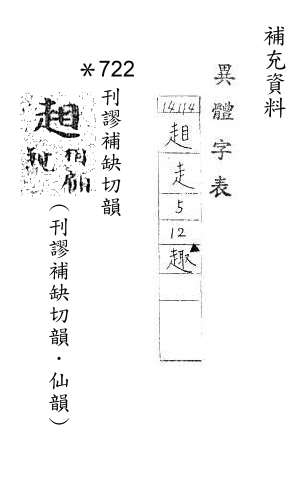 補充資料
異體字表
14114
走
5
12
趣
*722
刊謬補缺切韻
(刊謬補缺切韻．仙韻)